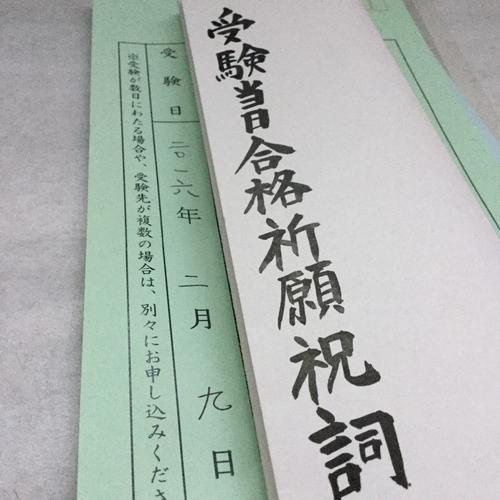 受験当日合格祈願祝詞
受験日
二〇一六年二月九日
※受験が数日にわたる場合や、受験先が複数の場合は、別々にお申し込みくださ